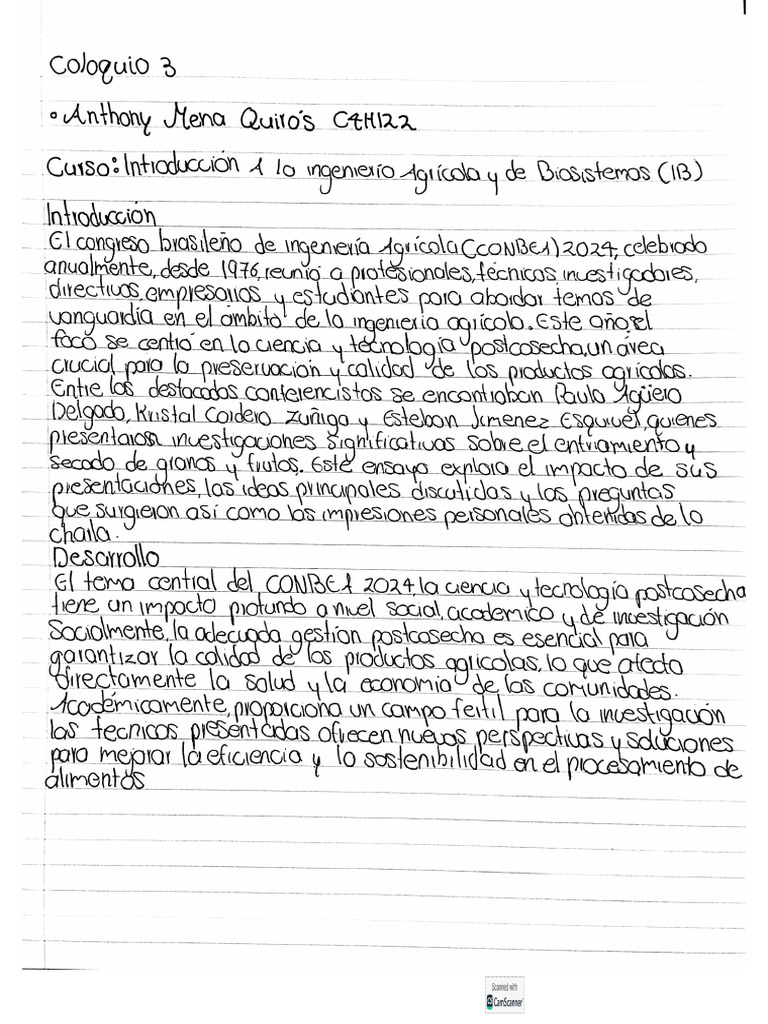 1
Coloquio 3
• Anthony Mena Quirós C4H122
Curso: Introducción a la ingeniería Agrícola y de Biosistemas (IB)
Introducción
El congreso brasileño de ingeniería Agrícola (CONBEA) 2024, celebrado
anualmente, desde 1976, reunió a profesionales, técnicos, investigadores,
directivos, empresarios y estudiantes para abordar temas de
vanguardia en el ámbito de la ingeniería agrícola. Este año, el
foco se centró en la ciencia y tecnología postcosecha, un área
crucial para la preservación y calidad de los productos agrícolas.
Entre los destacados conferencistas se encontraban Paula Agüero
Delgado, Kristal Cordero Zuñiga y Esteban Jimenez Esquivel, quienes
presentaron investigaciones significativas sobre el enfriamiento y
secado de granos y frutos. Este ensayo explora el impacto de sus
presentaciones, las ideas principales discutidas y las preguntas
que surgieron así como las impresiones personales obtenidas de la
charla.
Desarrollo
El tema central del CONBEA 2024, la ciencia y tecnología postcosecha
tiene un impacto profundo a nivel social, academico y de investigación
Socialmente, la adecuada gestión postcosecha es esencial para
garantizar la calidad de los productos agrícolas, lo que afecta
directamente la salud y la economía de las comunidades.
Académicamente, proporciona un campo fertil para la investigación
las tecnicas presentadas ofrecen nuevas perspectivas y soluciones
para mejorar la eficiencia y la sostenibilidad en el procesamiento de
alimentos
Scanned with
CS CamScanner